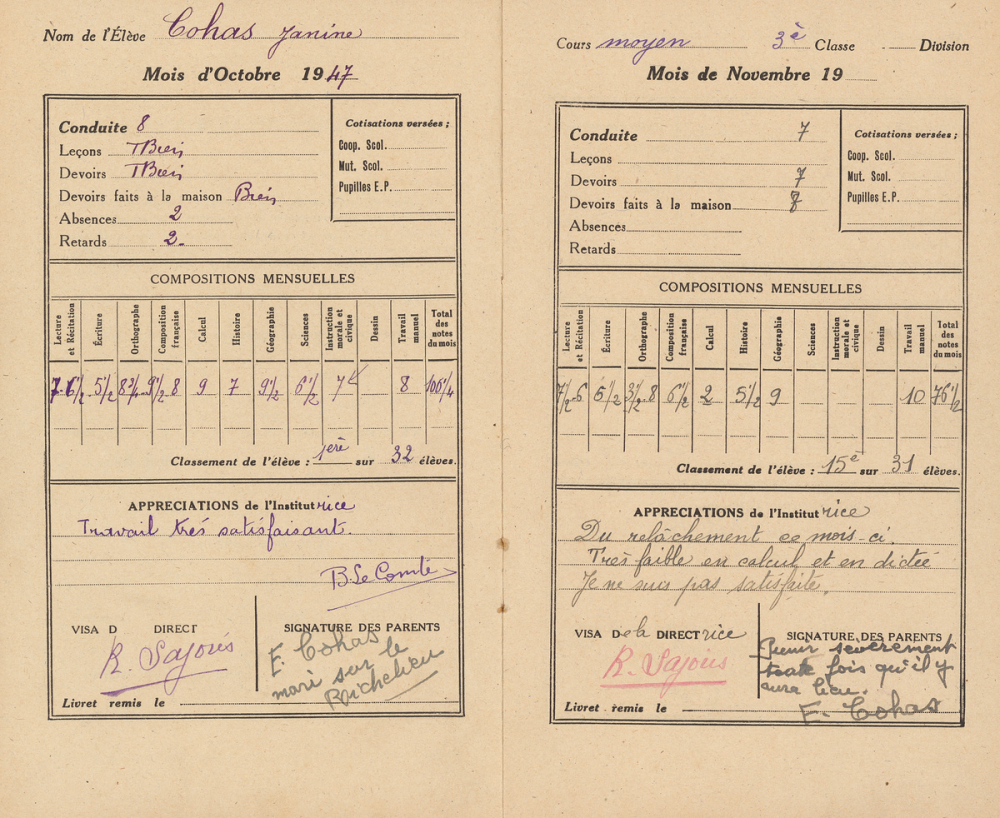 Nom de l'Élève Cohas Janine
Mois d'Octobre 1947
Conduite 8
Leçons TBien
Devoirs TBien
Devoirs faits à la maison Bien
Absences 2
Retards 2
Cotisations versées ;
Coop. Scol.
Mut. Scol.
Pupilles E.P.
COMPOSITIONS MENSUELLES
Lecture et Récitation
Écriture
Orthographe
Composition française
Calcul
Histoire
Géographie
Sciences
Instruction morale et civique
Dessin
Travail manuel
Total des notes du mois
9 7 9 1/2 6 1/2 7 8 106 1/4
Classement de l'élève : 1ère sur 32 élèves.
APPRECIATIONS de l'Institutrice
Travail très satisfaisant.
B. Le Comte
VISA D DIRECT
R. Sajous
SIGNATURE DES PARENTS
E. Cohas
mari sur le
Richelieu
Livret remis le
Cours moyen 3è Classe Division
Mois de Novembre 19
Conduite 7
Leçons
Devoirs 7
Devoirs faits à la maison 7
Absences
Retards
Cotisations versées ;
Coop. Scol.
Mut. Scol.
Pupilles E.P.
COMPOSITIONS MENSUELLES
Lecture et Récitation
Écriture
Orthographe
Composition française
Calcul
Histoire
Géographie
Sciences
Instruction morale et civique
Dessin
Travail manuel
Total des notes du mois
7 1/2 6 6 1/2 3 1/2 8 6 1/2 2 5 1/2 9 10 76 1/2
Classement de l'élève : 15e sur 31 élèves.
APPRECIATIONS de l'Institutrice
Du relâchement ce mois-ci.
Très faible en calcul et en dictée
Je ne suis pas satisfaite.
VISA De la DIRECTrice
R. Sajous
SIGNATURE DES PARENTS
Punir sévèrement
toute fois qu'il y
aura lieu.
E. Cohas
Livret remis le